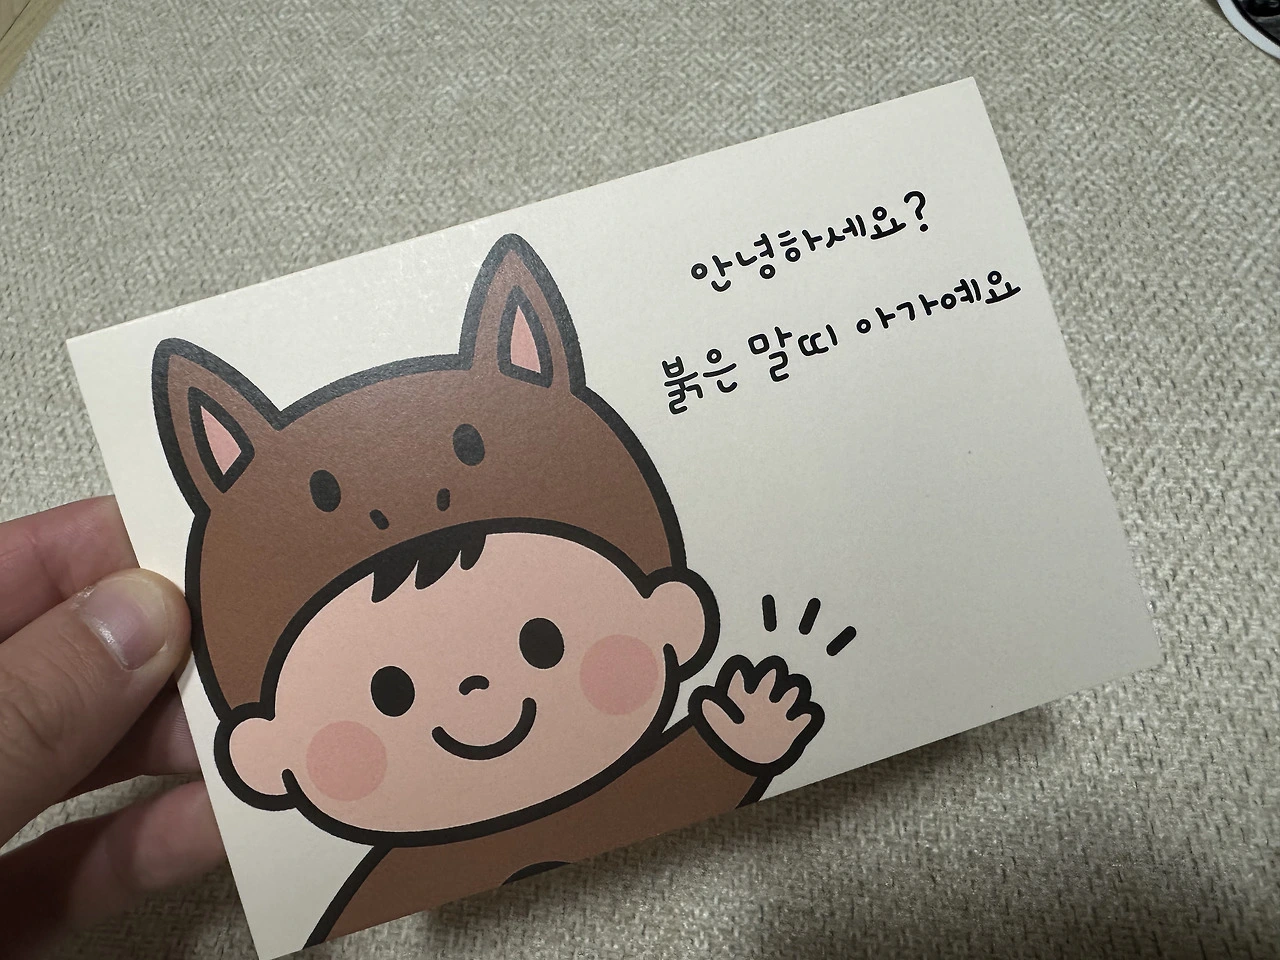 안녕하세요?
붉은 말띠 아가예요